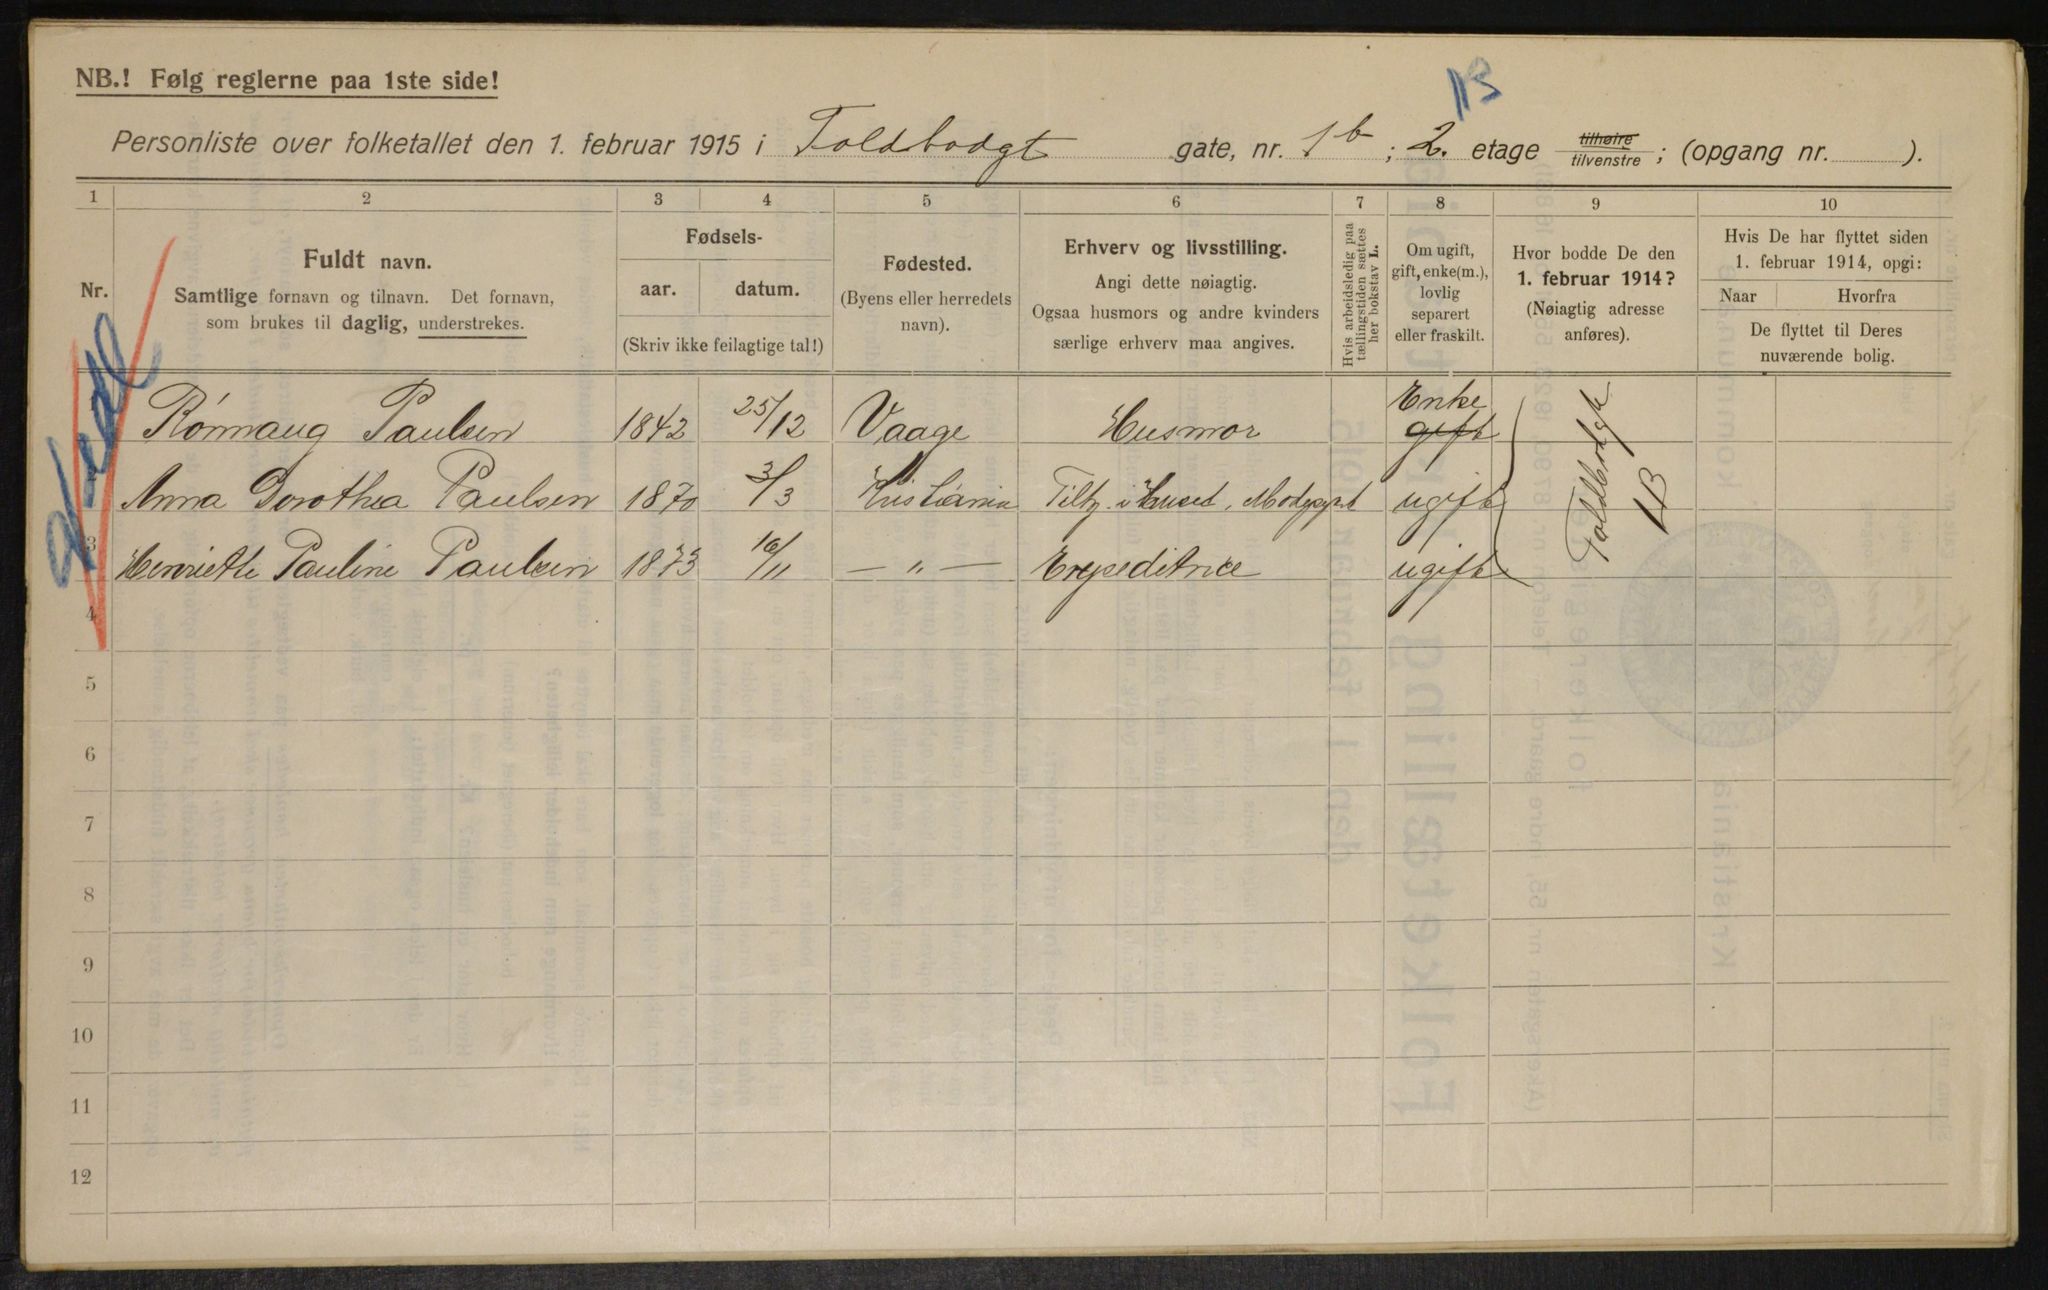 NB.! Følg reglerne paa 1ste side!
1B
Personliste over folketallet den 1. februar 1915 i Toldbodgt gate, nr. 1b ; 2. etage tilhøire tilvenstre ; (opgang nr. ).
1 2 3 4 5 6 7 8 9 10
Nr.
Fuldt navn.
Samtlige fornavn og tilnavn. Det fornavn,
som brukes til daglig, understrekes.
Fødsels-
aar. datum.
(Skriv ikke feilagtige tal!)
Fødested.
(Byens eller herredets
navn).
Erhverv og livsstilling.
Angi dette nøiagtig.
Ogsaa husmors og andre kvinders
særlige erhverv maa angives.
Hvis arbeidsledig paa
tællingstiden sættes
her bokstav L.
Om ugift,
gift, enke(m.),
lovlig
separert
eller fraskilt.
Hvor bodde De den
1. februar 1914?
(Nøiagtig adresse
anføres).
Hvis De har flyttet siden
1. februar 1914, opgi:
Naar Hvorfra
De flyttet til Deres
nuværende bolig.
Rønnaug Paulsen 1842 25/12 Vaage Husmor Enke gift
2 Anna Dorothea Paulsen 1870 3/3 Kristiania i Huset, ugift
3 Henriette Pauline Paulsen 1873 16/11 — " — Expeditrice ugift
Toldbodgt
1B
4
5
6
7
8
9
10
11
12